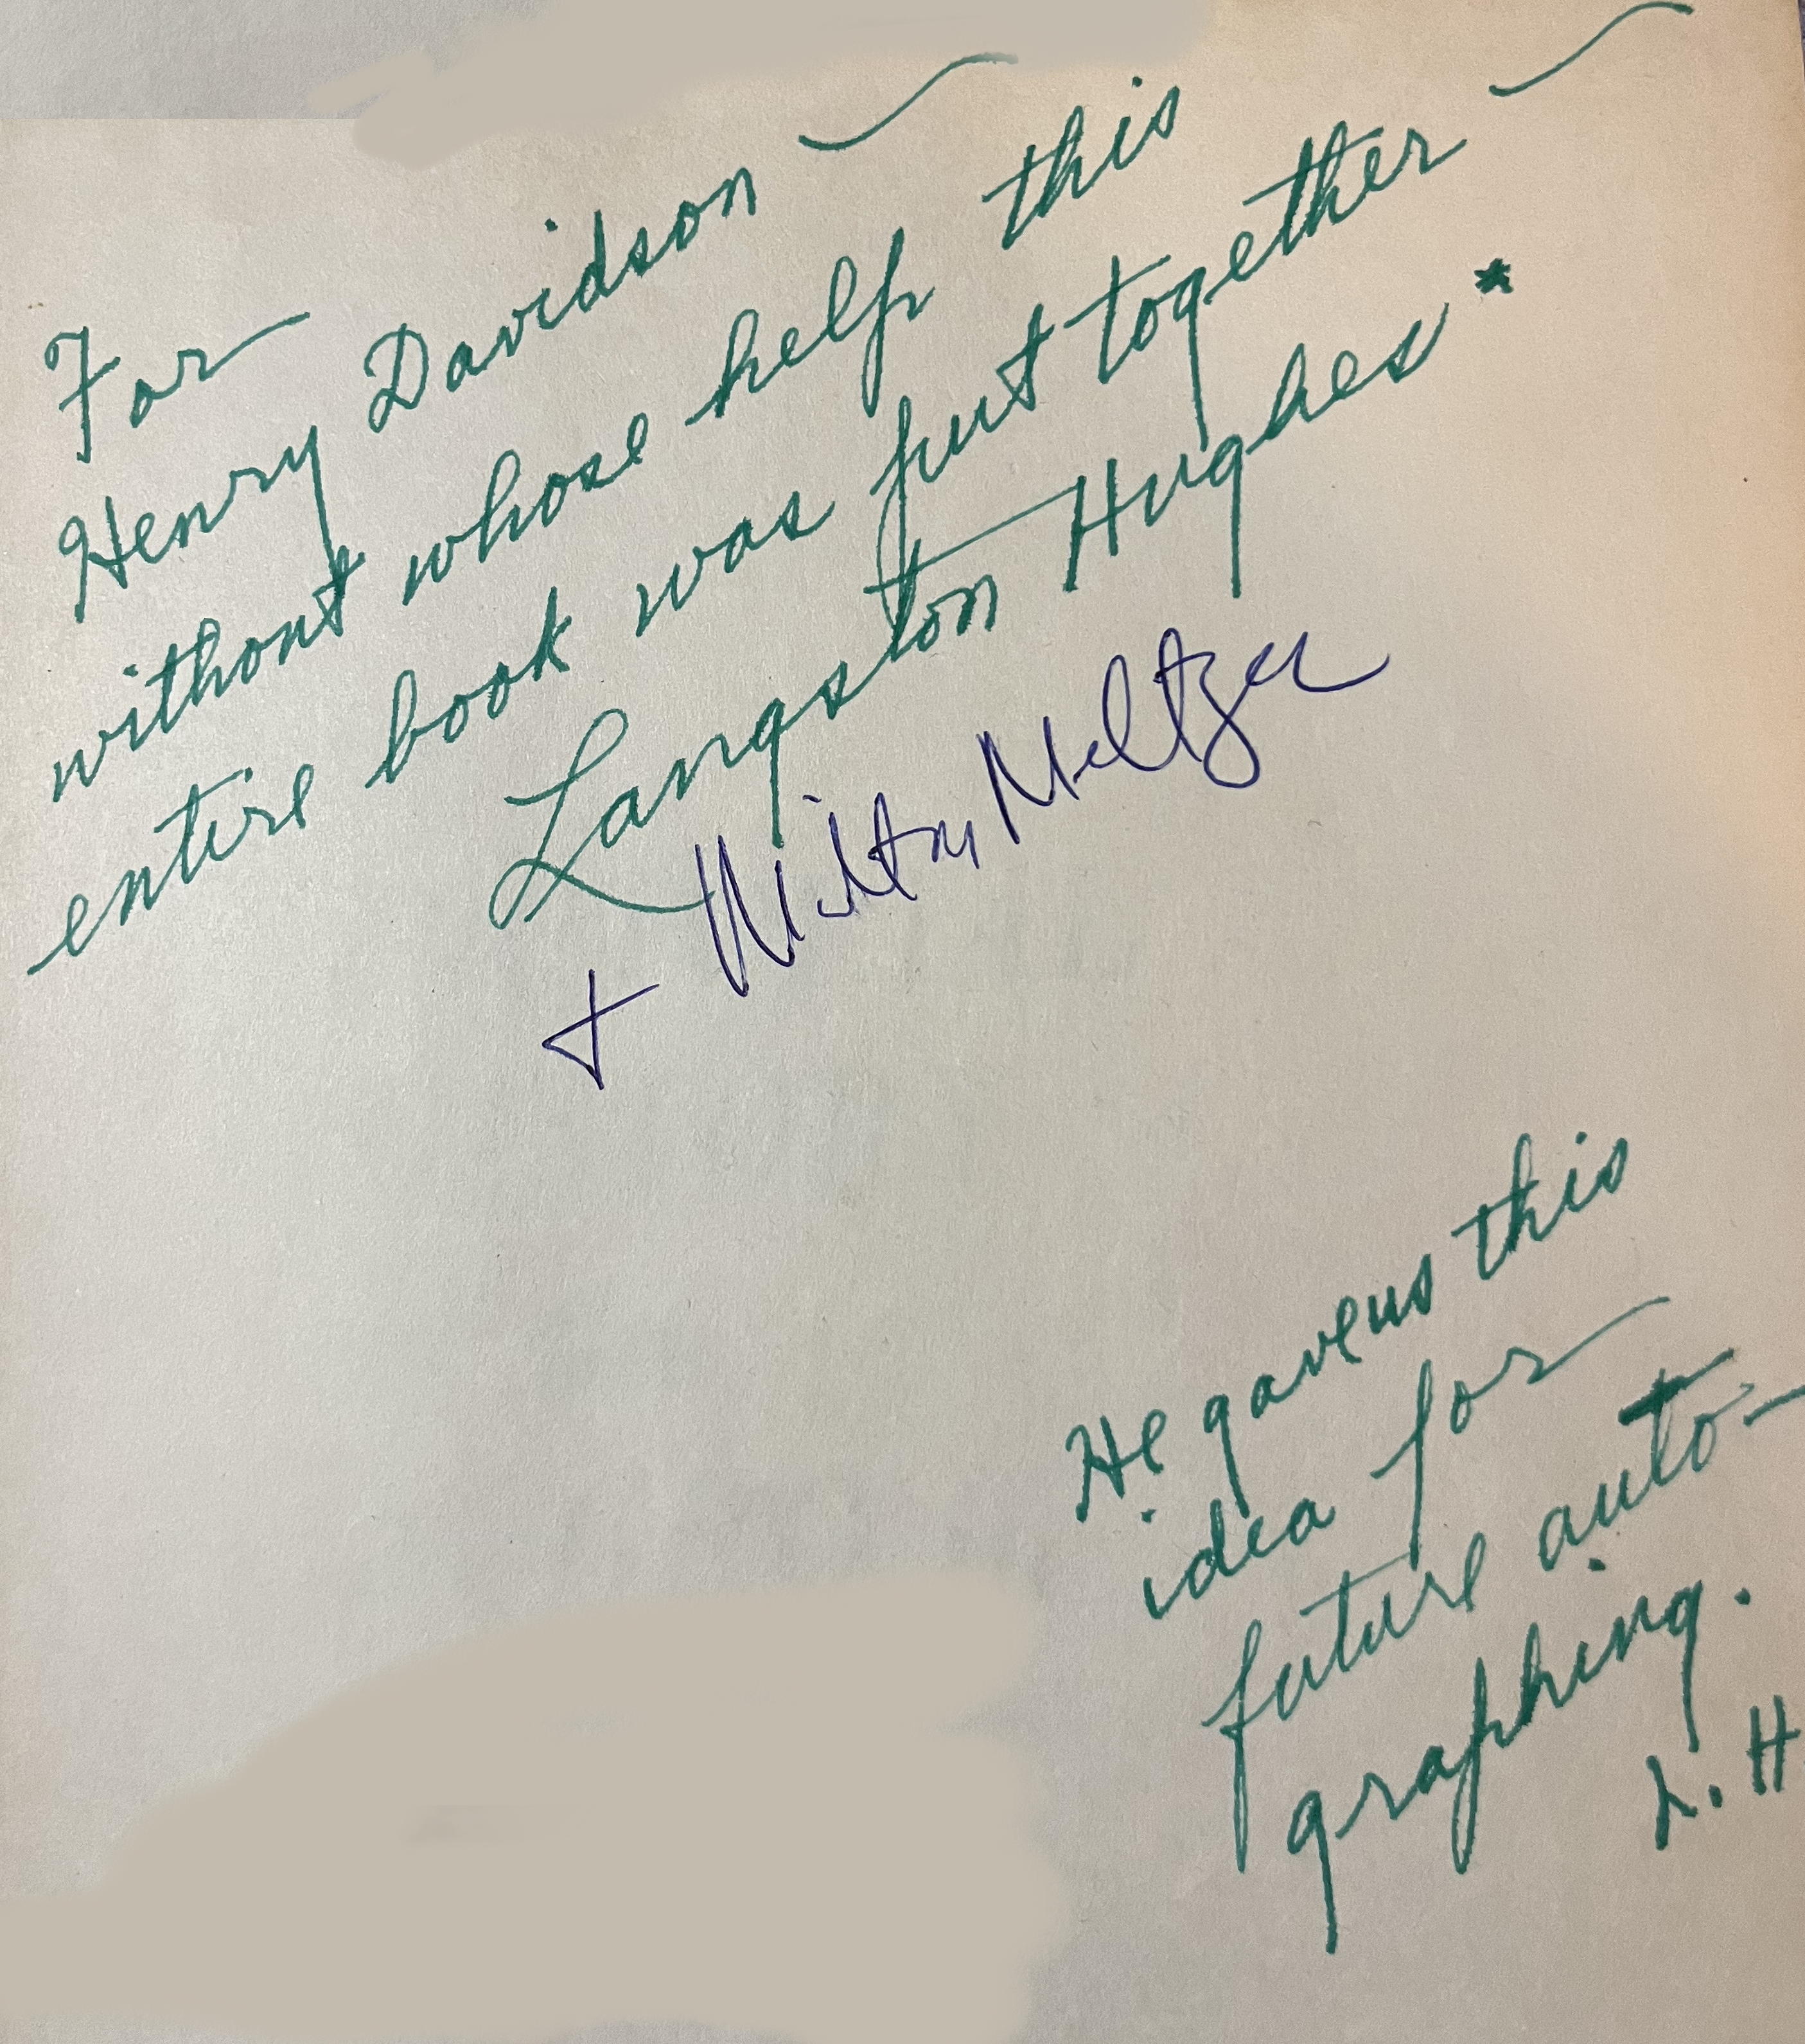 For
Henry Davidson —
without whose help this
entire book was put together —
Langston Hughes *
+ Milton Meltzer
He gave us this
idea for
future auto-
graphing.
L. H.